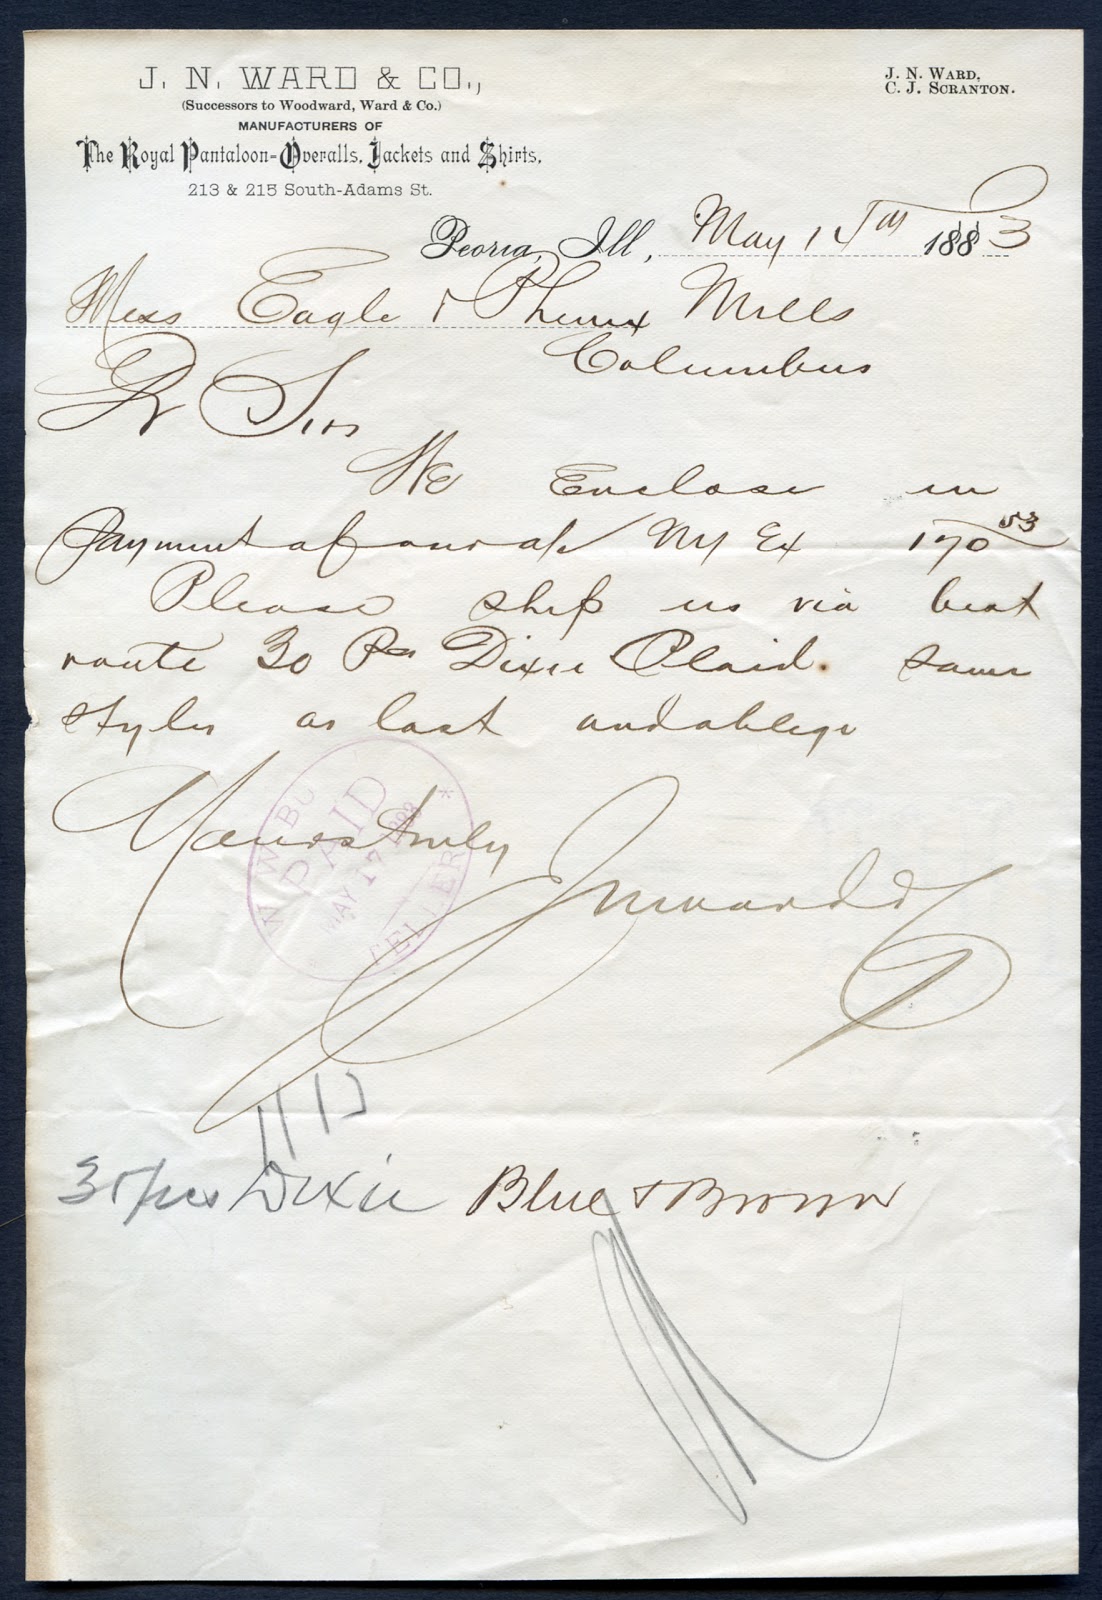 J. N. WARD & CO.,
(Successors to Woodward, Ward & Co.)
MANUFACTURERS OF
The Royal Pantaloon-Overalls, Jackets and Shirts,
213 & 215 South-Adams St.
J. N. WARD,
C. J. SCRANTON.
Peoria, Ill, May 1 th 1883
Mess Eagle & Phenix Mills
Columbus
Dr Sirs
We Enclose in
payment of our a/c NY Ex 170 53
Please ship us via best
route 30 Ps Dixie Plaid. Same
styles as last and oblige
Yours truly
JN Ward & Co
W W BU
PAID
MAY 17 1883
TELLER *
30 pcs Dixie Blue & Brown